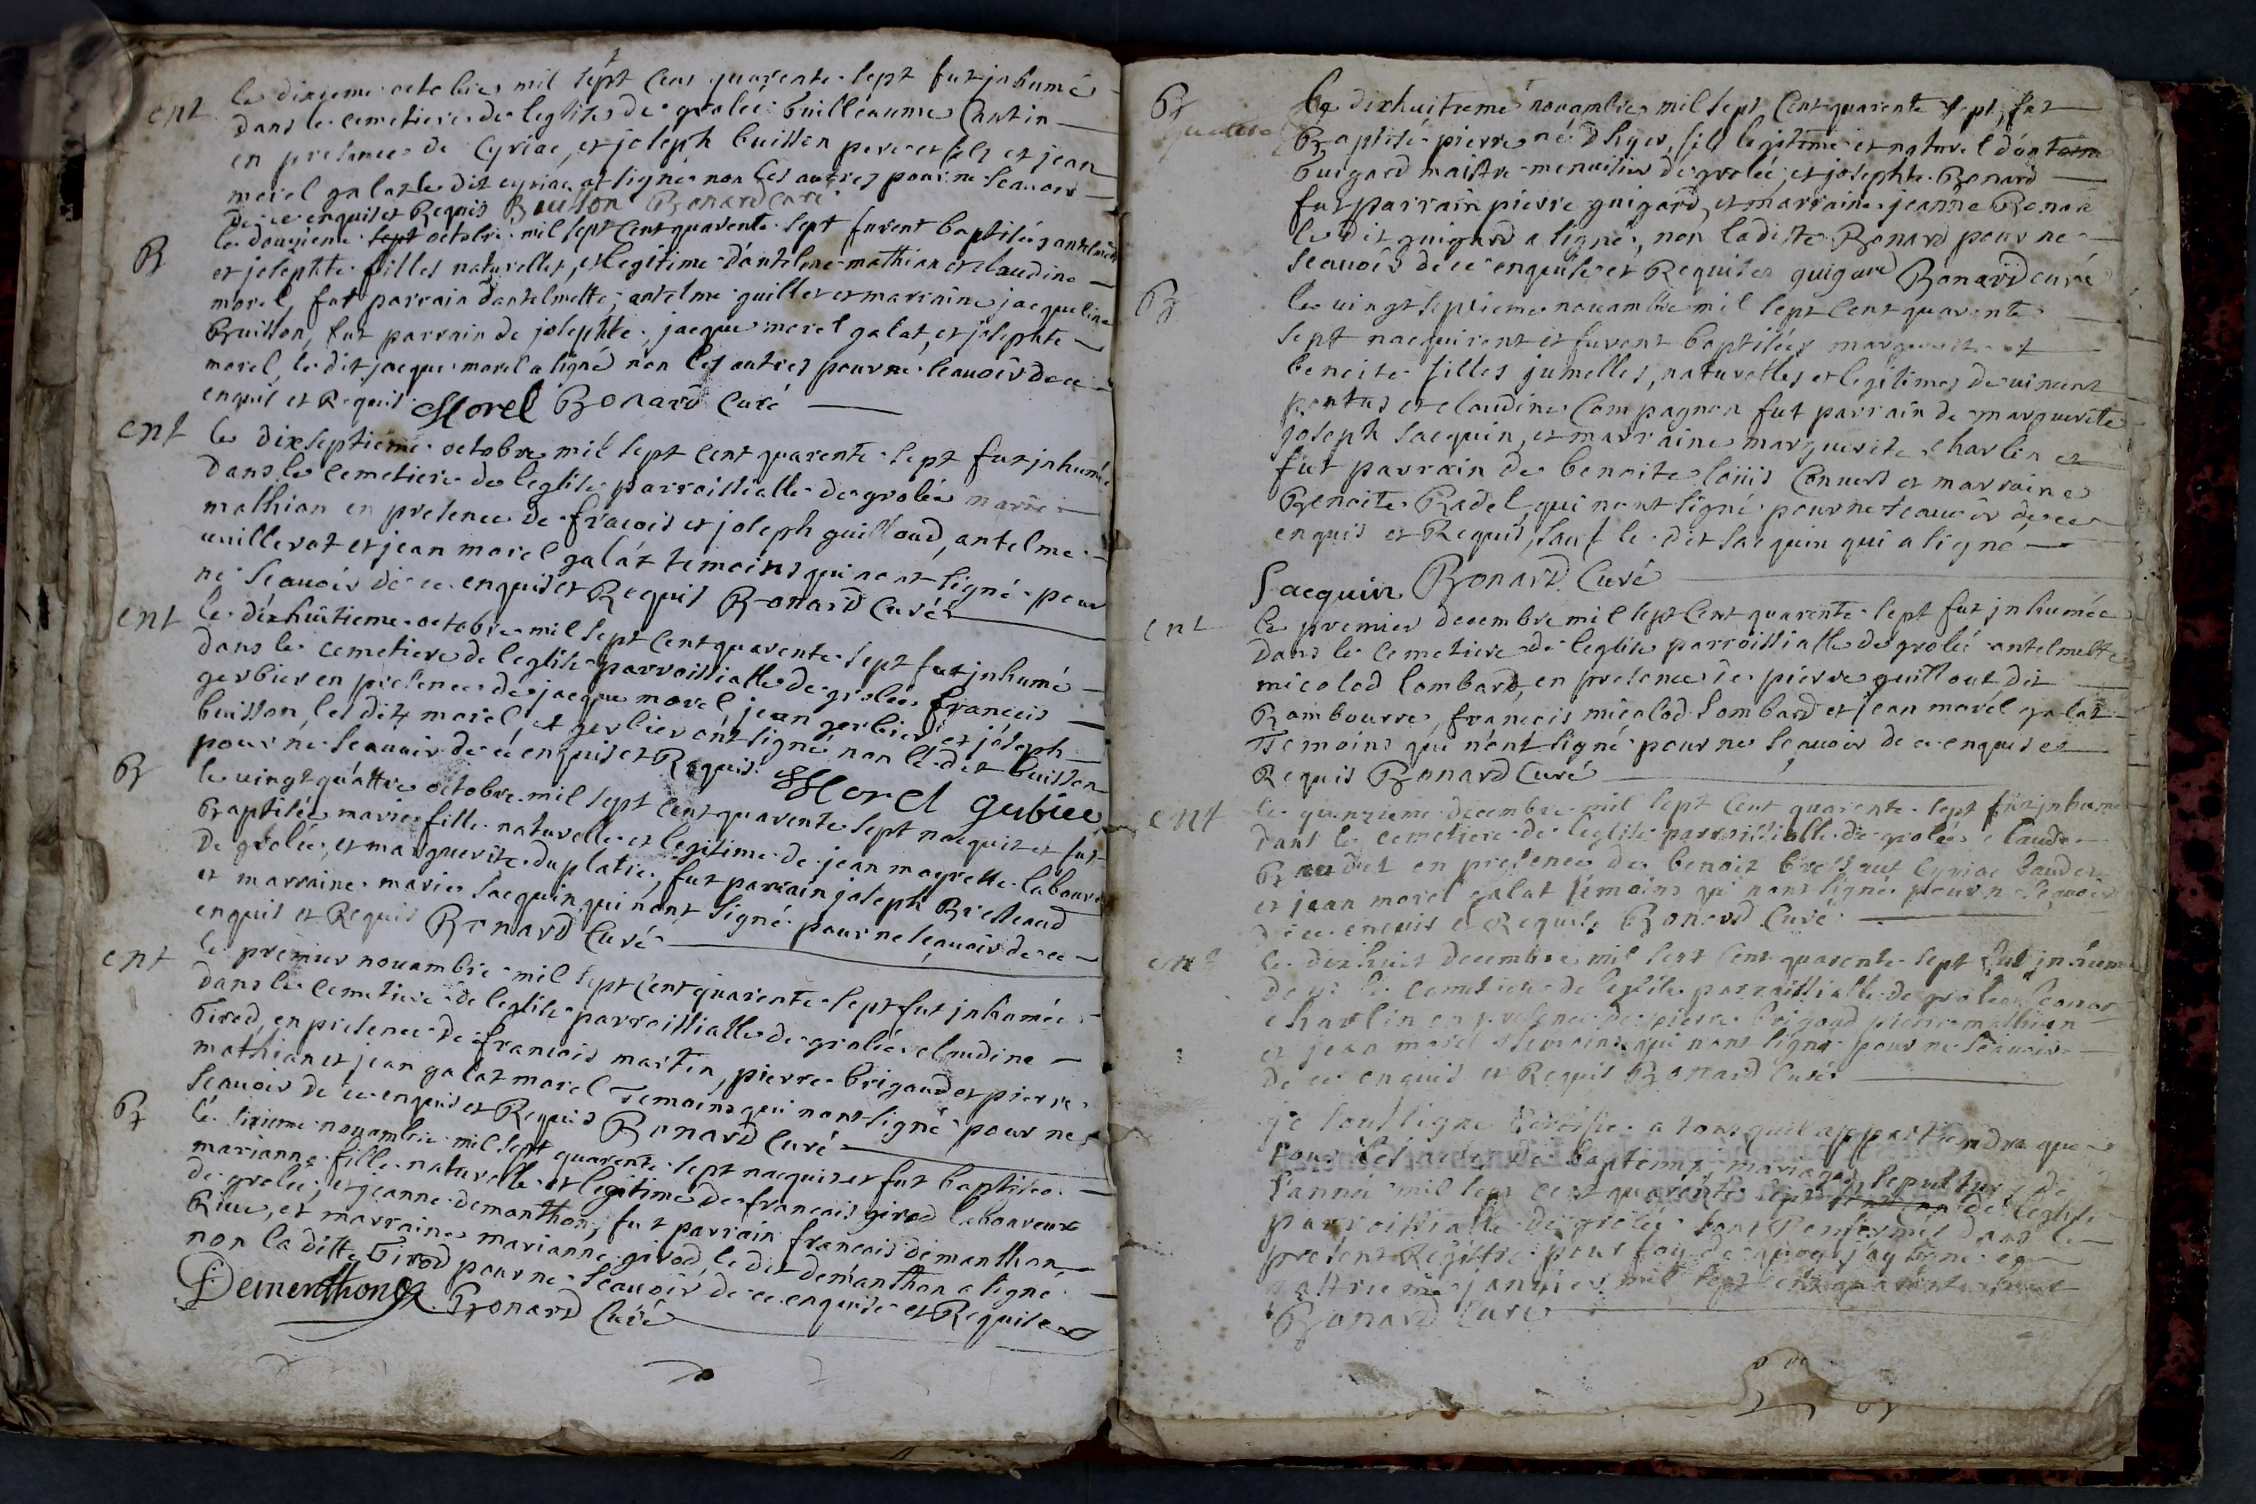 ent
le dixieme octobre mil sept cens quarente sept fut inhumé
dans le cemetiere de leglise de grolée guilleaume Cantin
en presance de Cyriac, et joseph buisson pere et fils et jean
morel galat le dit cyriac at signé non les autres pour ne scauoir
de ce enquis et Requis Buisson Bonard curé
B
le douzieme sept octobre mil sept cent quarente sept furent baptisées antelmette
et josephte filles naturelles, et legitime d'antelme mathian et claudine
morel, fut parrain dantelmette, antelme guillet et marraine jacqueline
Buisson, fut parrain de josephte, jacque morel galat, et josephte
morel, le dit jacque morel a signé non les autres pour ne scauoir de ce
enquis et Requis Morel Bonard Curé
ent
le dixseptieme octobre mil sept cent quarente sept fut inhumée
dans le cemetiere de leglise parroissialle de grolée marie
mathian en presence de fracois et joseph guilloud, antelme
uuillerot et jean morel galat temoins qui nont signé pour
ne scauoir de ce enquis et Requis Bonard Curé
ent
le dixhuitieme octobre mil sept cent quarente sept fut inhumé
dans le cemetiere de leglise parroissialle de grolée francois
gerbier en presence de jacque morel jean gerbier et joseph
buisson, les dits morel, et gerbier ont signé non le dit buisson
pour ne scauoir de ce enquis et Requis. Morel
B
le uingt quattre octobre mil sept cent quarente sept nacquit et fut
Baptisée marie fille naturelle et legitime de jean magrette laboureur
de grolée, et marguerite duplatre, fut parrain joseph Bretteaud
et marraine marie sacquin qui nont signé pour ne scauoir de ce
enquis et Requis Bonard Curé
ent
le premier nouambre mil sept cent quarente sept fut inhumée
dans le cemetiere de leglise parroissialle de grolée claudine
Girod, en presence de francois martin, pierre brigaud et pierre
mathian et jean galat morel Temoins qui nont signé pour ne
scauoir de ce enquis et Requis Bonard Curé
B
le sixieme nouambre mil sept quarente sept nacquit et fut baptisée
marianne fille naturelle et legitime de francois girod laboureur
de grolée, et jeanne demanthon, fut parrain francois demanthon
Riue, et marraine marianne girod, le dit demanthon a signé
non la ditte Girod pour ne scauoir de ce enquise et Requise
Dementhon Bonard Curé
B
le dixhuitieme nouambre mil sept Cent quarente sept, fut
Baptisé pierre né d'hyer, fils legitime et naturel d'antoine
Guigard maistre menuisier de grolée, et josephte Bonard
fut parrain pierre guigard, et marraine jeanne Bonard
le dit guigard a signé, non la ditte Bonard pour ne
scauoir de ce enquise et Requise guigard Bonard curé
B
le uingt septieme nouambre mil sept Cent quarente
sept nacquirent et furent baptisées marguerite et
benoite filles jumelles, naturelles et legitimes de uincent
pontus et claudine Compagnon fut parrain de marguerite
joseph sacquin, et marraine marguerite charlin et
fut parrain de benoite louis Conuerd et marraine
Benoite Radel qui nont signé pour ne scauoir de ce
enquis et Requis, sauf le dit sacquin qui a signé
Sacquin Bonard Curé
ent
le premier decembre mil sept Cent quarente sept fut inhumée
dans le cemetiere de leglise parroissialle de grolée antelmette
micolod lombard, en presence de pierre guillout dit
Rambourre, francois micolod lombard et jean morel galat
Temoins qui n'ont signé pour ne scauoir de ce enquis et
Requis Bonard Curé
ent
le quinzieme decembre mil sept Cent quarente sept fut inhumé
dans le cemetiere de leglise parroissialle de grolée claude
Baudet en presence de benoit Cyriac baudet
et jean morel galat temoins qui nont signé pour ne scauoir
de ce enquis et Requis Bonard Curé
ent
le dixhuit decembre mil sept Cent quarente sept fut inhumé
dans le cemetiere de leglise parroissialle de grolée
charlin en presence de pierre brigaud pierre mathian
et jean morel temoins qui nont signé pour ne scauoir
de ce enquis et Requis Bonard Curé
je soussigne certifie a tous quil appartiendra que
tous les actes de baptemes, mariages, sepultures de
l'année mil sept cent quarente sept de leglise
parroissialle de grolée sont Renfermés dans le
present Registre pour foy de quoy j'ay signé ce
quattrieme januier mil sept cent quarente huit
Bonard Curé